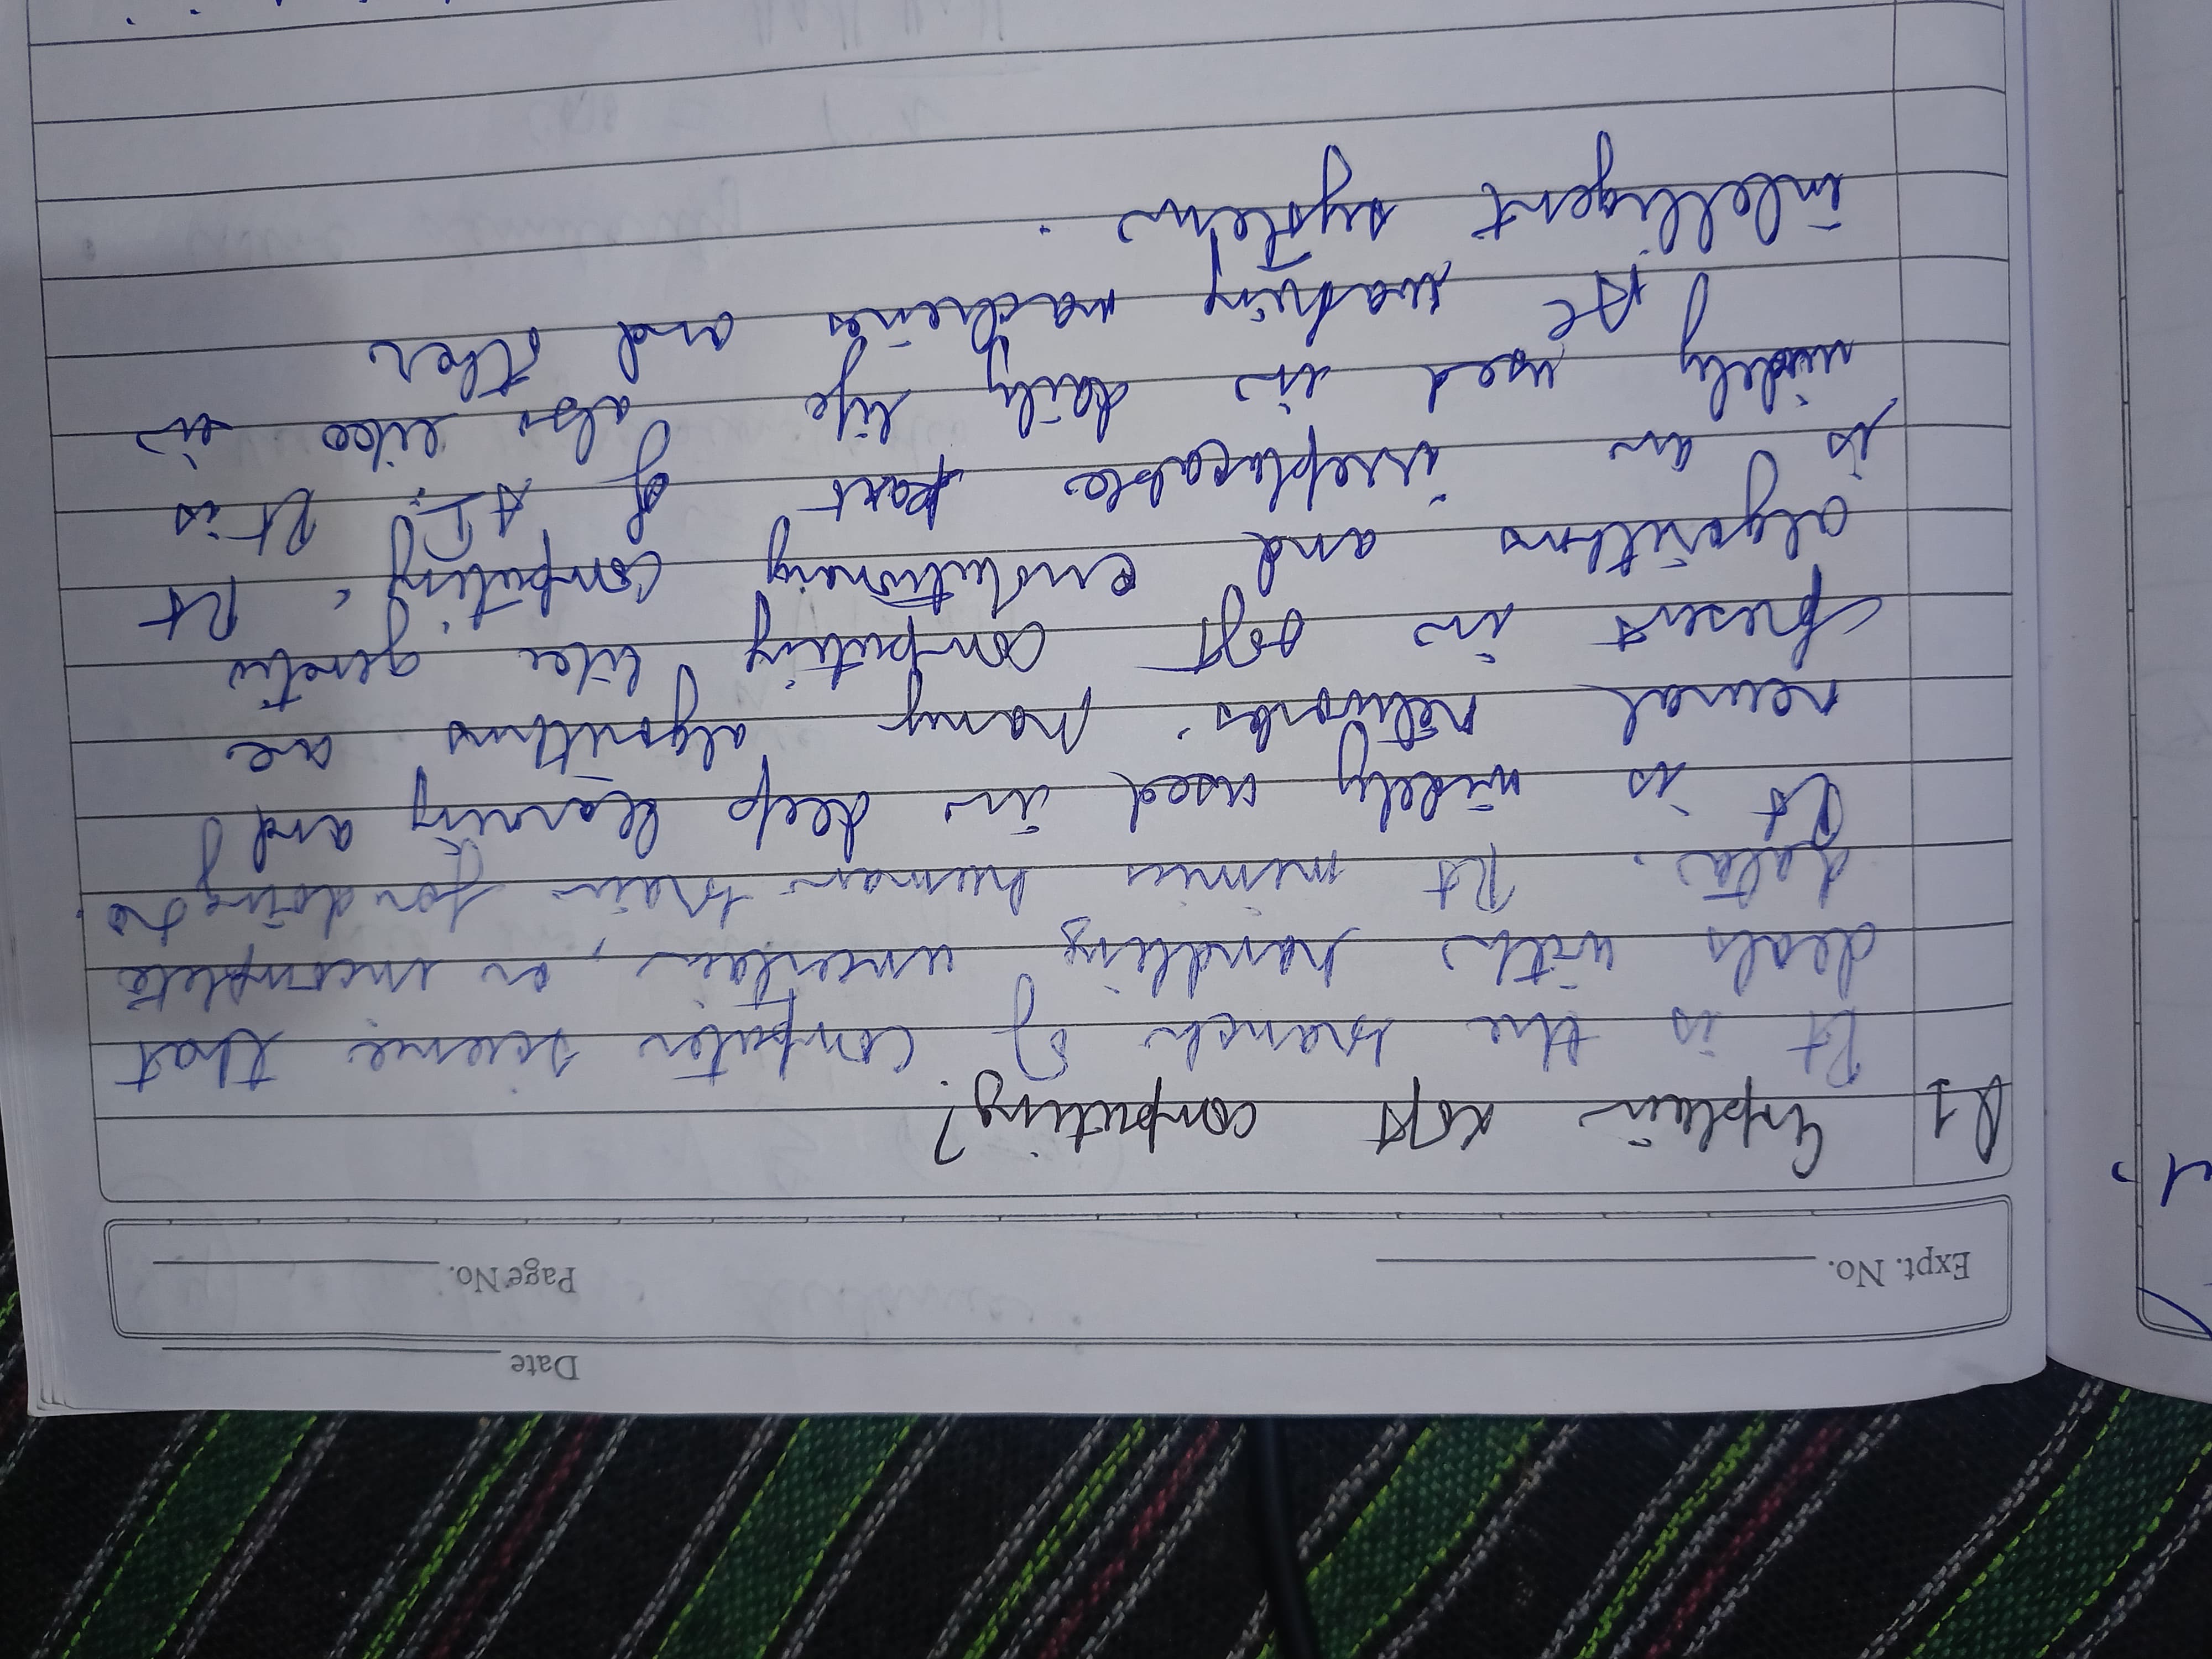 Date
Expt. No.
Page No.
Q1 Explain soft computing?
It is the branch of computer science that
deals with handling uncertain, or incomplete
data. It mimics human brain for doing so.
It is widely used in deep learning and
neural networks. Many algorithms are
present in soft computing like genetic
algorithms and evolutionary computing. It
is an irreplacable part of AI. It is
widely used in daily life also like in
AC washing machines and other
intelligent system.